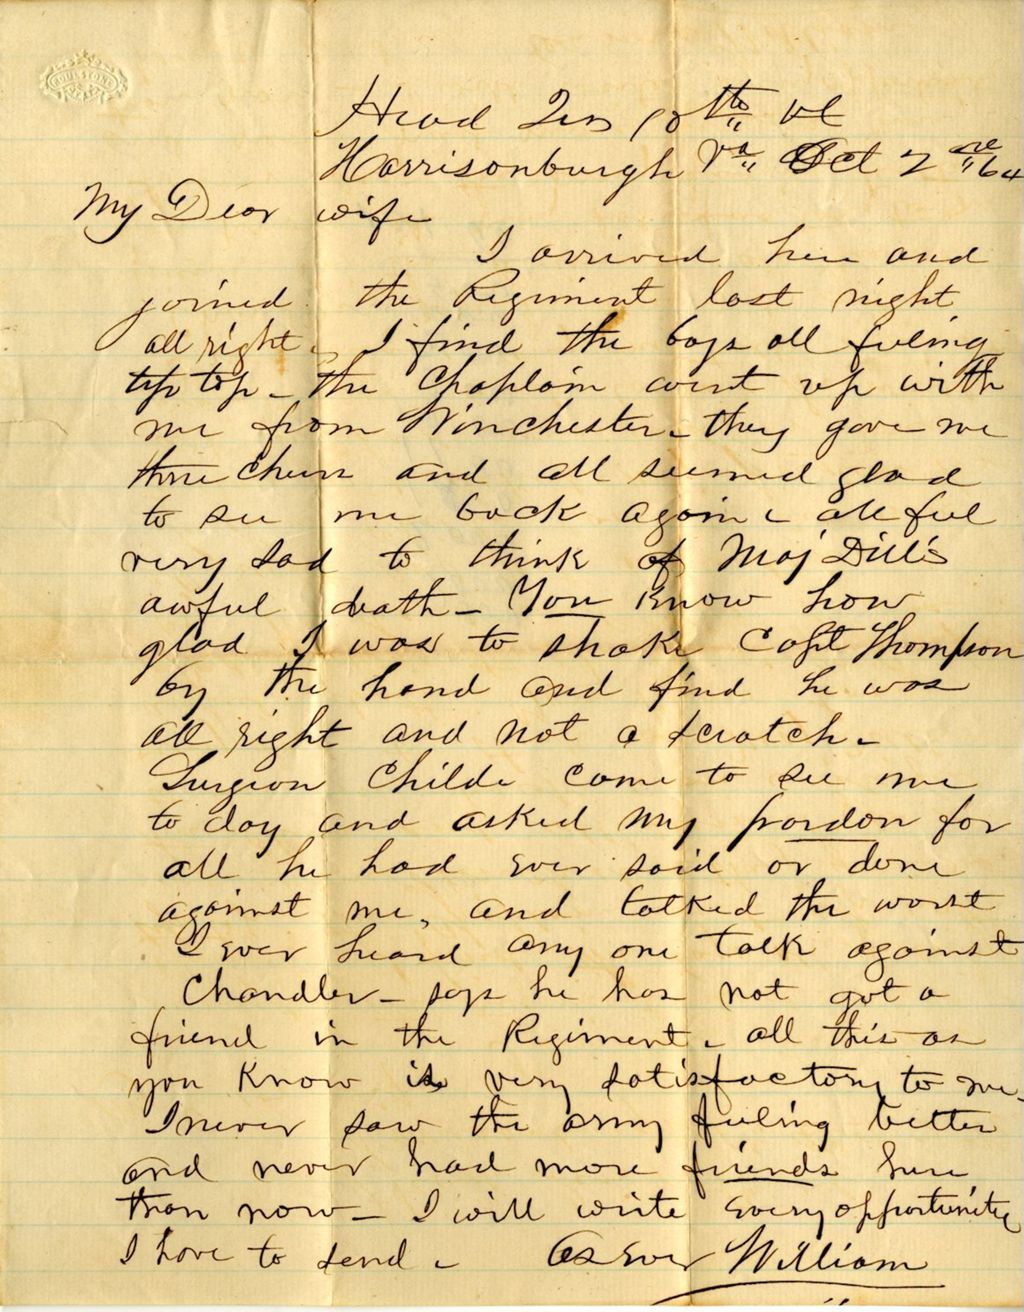 Head Qrs 10th Vt
Harrisonburgh Va Oct 2nd 64
My Dear wife
I arrived here and
joined the Regiment last night
all right. I find the boys all feeling
tip top - the Chaplain went up with
me from Winchester - they gave me
three cheers and all seemed glad
to see me back again - all feel
very sad to think of Maj Dill's
awful death - You know how
glad I was to shake Capt Thompson
by the hand and find he was
all right and not a scratch -
Surgeon Childe came to see me
to day and asked my pardon for
all he had ever said or done
against me, and talked the worst
I ever heard any one talk against
Chandler - says he has not got a
friend in the Regiment. all this as
you know is very satisfactory to me -
I never saw the army feeling better
and never had more friends here
than now - I will write every opportunity
I have to send - As Ever William